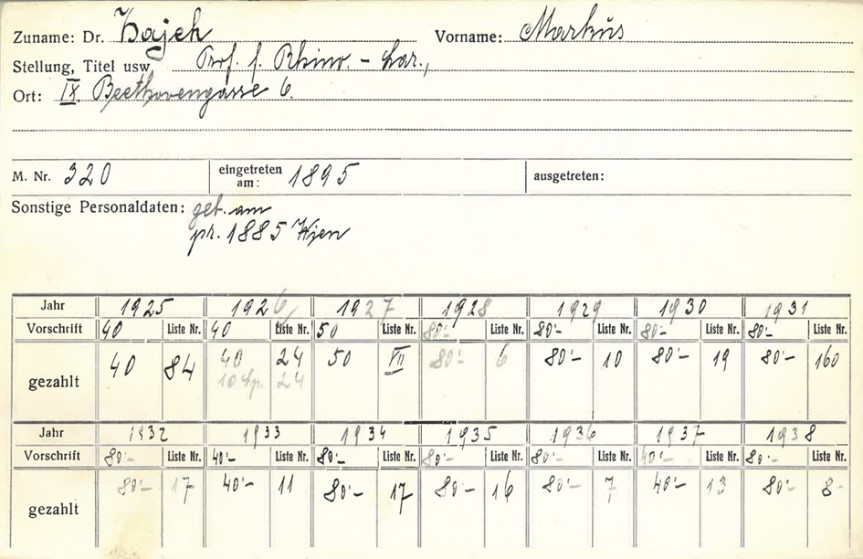 Zuname: Dr. Hajek Vorname: Markus
Stellung, Titel usw Prof. f. Rhino. - Lar.,
Ort: IX. Beethovengasse 6.
M. Nr. 320 eingetreten am: 1895 ausgetreten:
Sonstige Personaldaten: geb. am
pr. 1885 Wien
Jahr 1925 1926 1927 1928 1929 1930 1931
Vorschrift 40 Liste Nr. 40 Liste Nr. 50 Liste Nr. 80'- Liste Nr. 80'- Liste Nr. 80'- Liste Nr. 80'- Liste Nr.
gezahlt 40 84 40 24 50 VII 80'- 6 80'- 10 80'- 19 80'- 160
24
Jahr 1932 1933 1934 1935 1936 1937 1938
Vorschrift 80'- Liste Nr. 40'- Liste Nr. 80'- Liste Nr. 80'- Liste Nr. 80'- Liste Nr. 40'- Liste Nr. 80'- Liste Nr.
gezahlt 80'- 17 40'- 11 80'- 17 80'- 16 80'- 7 40'- 13 80'- 8